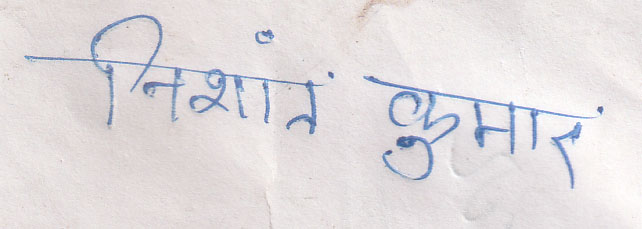 निशांत कुमार